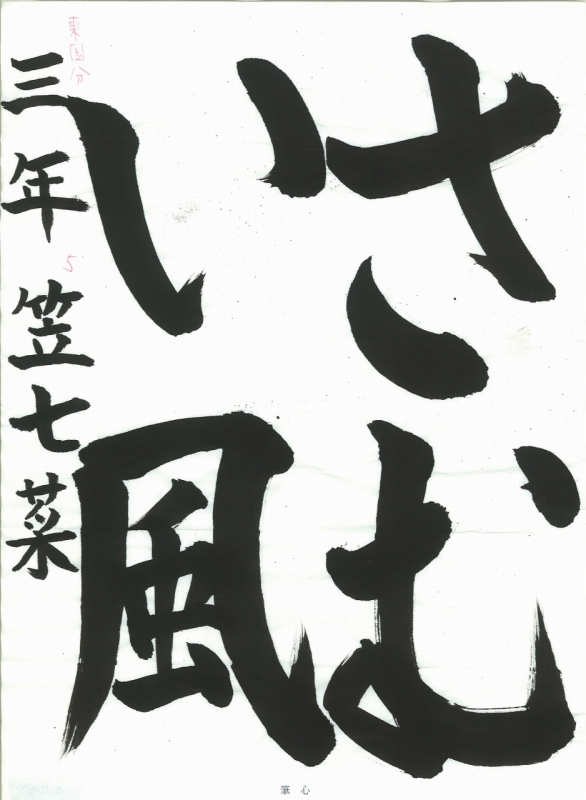 さむ
い風
三年 笠七菜
東国分
5
筆心